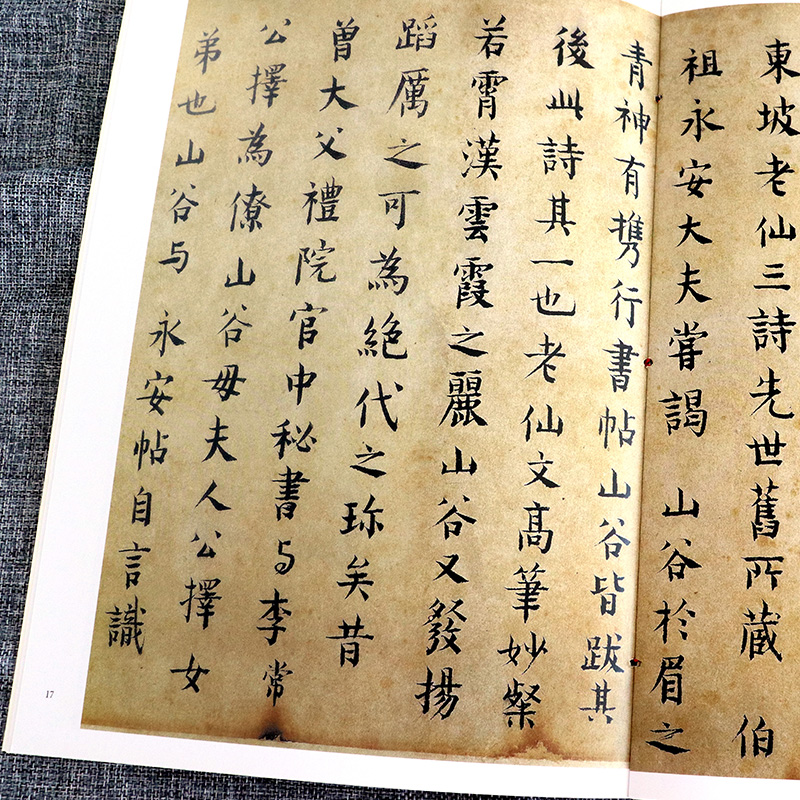 東坡老仙三詩先世舊所藏 伯
祖永安大夫嘗謁 山谷於眉之
青神有携行書帖山谷皆跋其
後此詩其一也老仙文高筆妙粲
若霄漢雲霞之麗山谷又發揚
蹈厲之可為絕代之珎矣昔
曾大父禮院官中秘書与李常
公擇為僚山谷母夫人公擇女
弟也山谷与 永安帖自言識
17